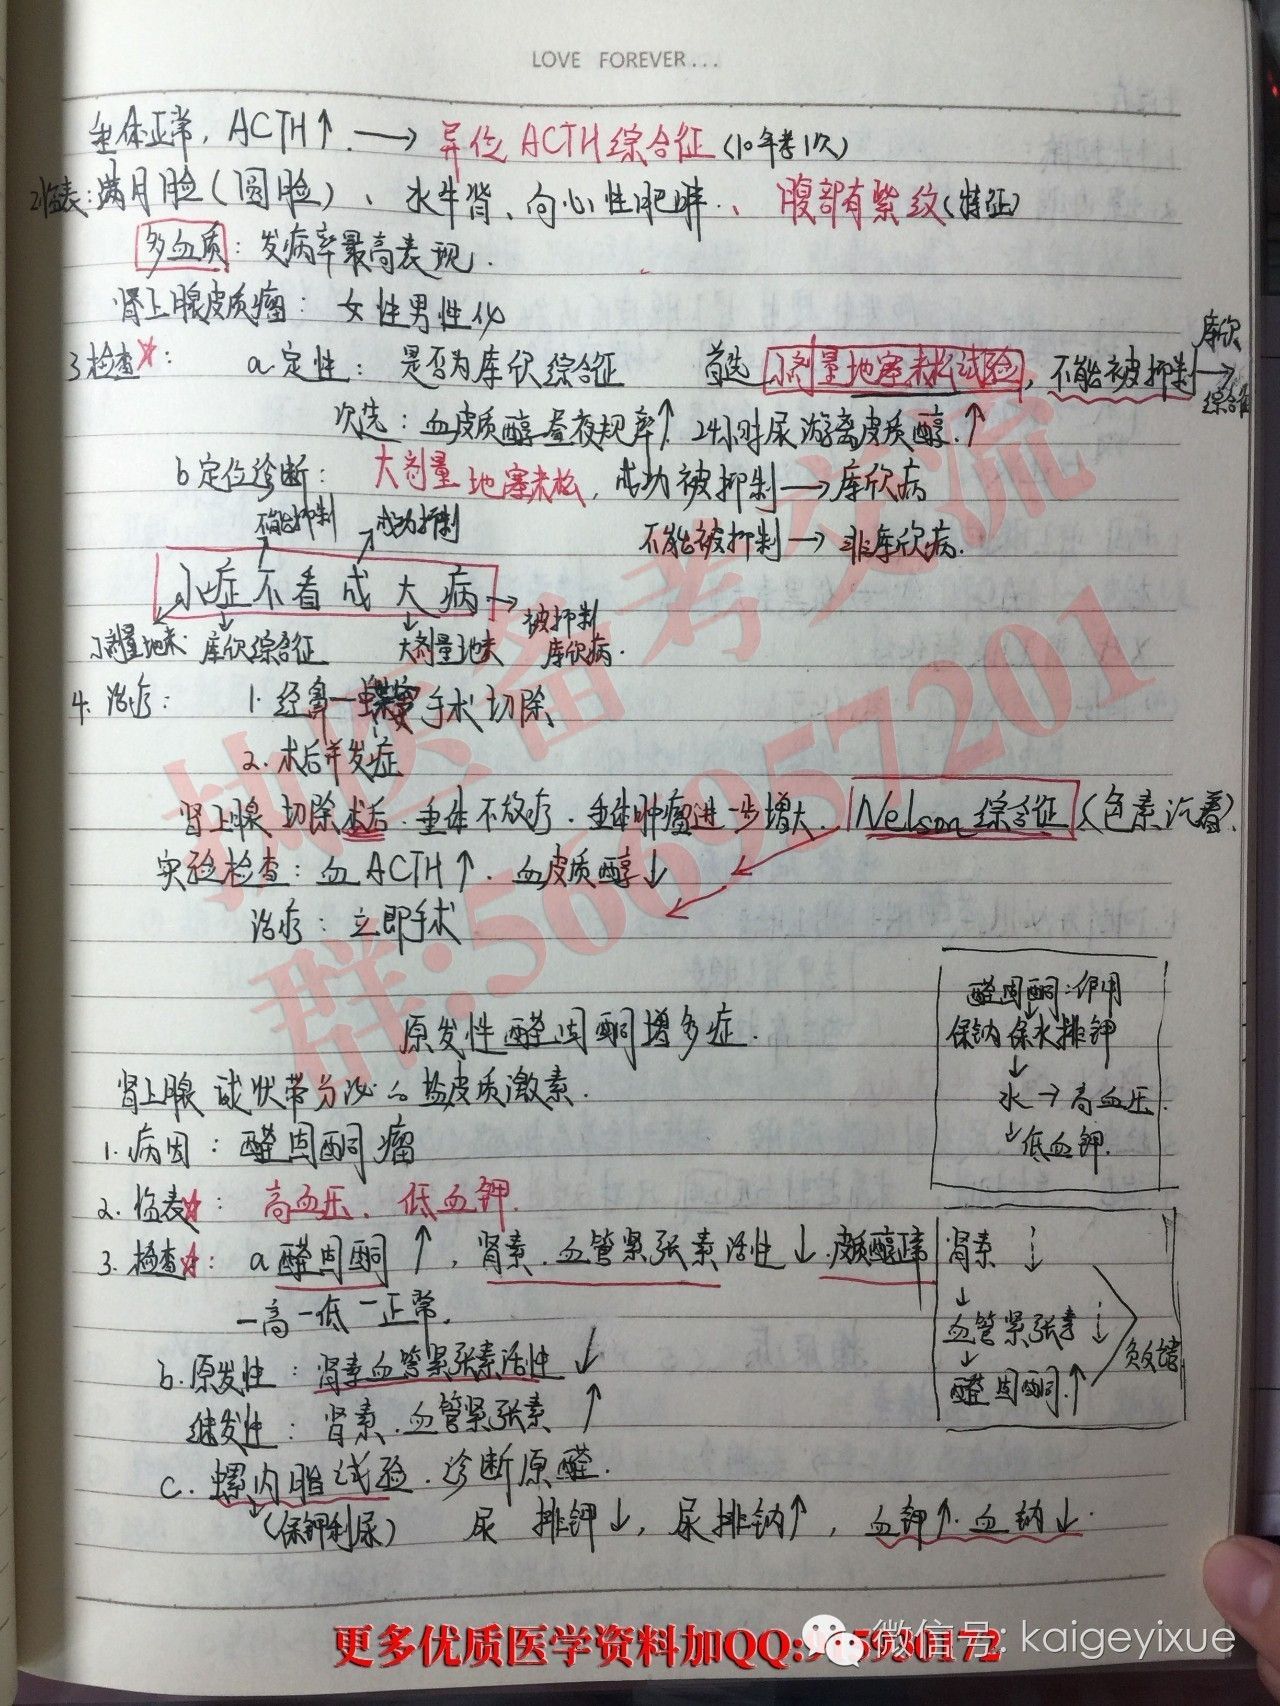 LOVE FOREVER...
垂体正常, ACTH↑. → 异位ACTH综合征 (10年考1次)
2.临表: 满月脸(圆脸)、水牛背、向心性肥胖、腹部有紫纹(特征)
多血质: 发病率最高表现.
肾上腺皮质瘤: 女性男性化
3.检查☆: a定性: 是否为库欣综合征 首选 小剂量地塞米松试验, 不能被抑制→库欣综合征
次选: 血皮质醇昼夜规率↑ 24小时尿游离皮质醇.↑
b定位诊断: 大剂量地塞米松, 成功被抑制→库欣病
不能抑制 成功抑制 不能被抑制→非库欣病.
小症不看成大病
小剂量地米 库欣综合征 大剂量地米 被抑制 库欣病.
4. 治疗: 1. 经鼻一蝶窦手术切除
2. 术后并发症
肾上腺切除术后. 垂体不放疗. 垂体肿瘤进一步增大. Nelson综合征 (色素沉着).
实验检查: 血ACTH↑. 血皮质醇↓
治疗: 立即手术
原发性醛固酮增多症.
肾上腺球状带分泌的盐皮质激素.
1. 病因: 醛固酮瘤
2. 临表☆: 高血压、低血钾.
3. 检查☆: a醛固酮↑, 肾素.血管紧张素活性↓.皮质醇正常
一高一低一正常.
b.原发性: 肾素血管紧张素活性↓
继发性: 肾素.血管紧张素↑
c. 螺内脂试验. 诊断原醛.
(保钾利尿) 尿排钾↓, 尿排钠↑, 血钾↑.血钠↓.
醛固酮:作用
保钠保水排钾
↓
水→高血压.
↓低血钾.
肾素 ↓
↓
血管紧张素 ↓
↓ 负反馈
醛固酮.↑
执医备考交流
群:566957201
更多优质医学资料加QQ:
微信号: kaigeyixue